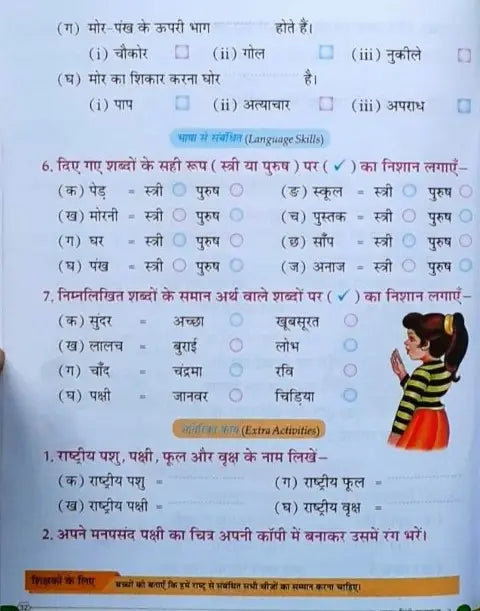 (ग) मोर-पंख के ऊपरी भाग ............ होते हैं।
(i) चौकोर (ii) गोल (iii) नुकीले
(घ) मोर का शिकार करना घोर ............ है।
(i) पाप (ii) अत्याचार (iii) अपराध
भाषा से संबंधित (Language Skills)
6. दिए गए शब्दों के सही रूप ( स्त्री या पुरुष ) पर ( ✓ ) का निशान लगाएँ–
(क) पेड़ = स्त्री पुरुष (ङ) स्कूल = स्त्री पुरुष
(ख) मोरनी = स्त्री पुरुष (च) पुस्तक = स्त्री पुरुष
(ग) घर = स्त्री पुरुष (छ) साँप = स्त्री पुरुष
(घ) पंख = स्त्री पुरुष (ज) अनाज = स्त्री पुरुष
7. निम्नलिखित शब्दों के समान अर्थ वाले शब्दों पर ( ✓ ) का निशान लगाएँ–
(क) सुंदर = अच्छा खूबसूरत
(ख) लालच = बुराई लोभ
(ग) चाँद = चंद्रमा रवि
(घ) पक्षी = जानवर चिड़िया
अतिरिक्त कार्य (Extra Activities)
1. राष्ट्रीय पशु, पक्षी, फूल और वृक्ष के नाम लिखें–
(क) राष्ट्रीय पशु = ............ (ग) राष्ट्रीय फूल = ............
(ख) राष्ट्रीय पक्षी = ............ (घ) राष्ट्रीय वृक्ष = ............
2. अपने मनपसंद पक्षी का चित्र अपनी कॉपी में बनाकर उसमें रंग भरें।
शिक्षकों के लिए बच्चों को बताएँ कि हमें राष्ट्र से संबंधित सभी चीजों का सम्मान करना चाहिए।
32